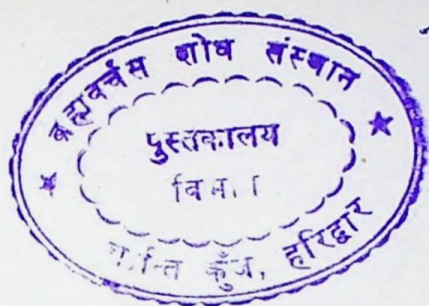 ब्रह्मवर्चस शोध संस्थान
पुस्तकालय
कुँज, हरिद्वार